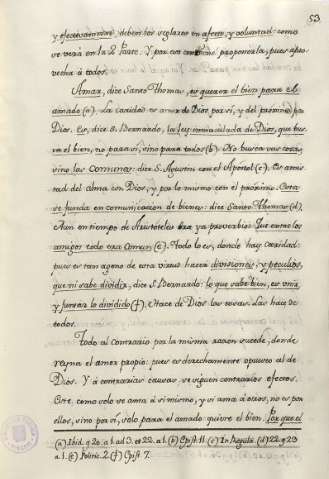 53
y efectivamente, deben ser vigilares en afecto, y voluntad: como
se verá en la 2. Parte. Y por eso proponerla, pues apro-
vecha á todos.
Amar, dice Santo Thomas, es querer el bien para el
amado (a). La caridad es amor de Dios por sí, y del proximo por
Dios. Es, dice S. Bernardo, la ley inmaculada de Dios, que bus-
ca el bien, no para sí, sino para todos (b). No busca sus cosas,
sino las comunes: dice S. Agustin con el Apostol (c). Es amis-
tad del alma con Dios, y por lo mismo con el proximo. Esta
se funda en comunicacion de bienes: dice Santo Thomas (d).
Aun en tiempo de Aristoteles era ya proverbio: Que entre los
amigos todo era comun (e). Todo lo es, donde hay caridad:
pues es tan ageno de esta virtud hacer divisiones, y peculios,
que ni sabe dividir, dice S. Bernardo: lo que sabe bien, es unir,
y juntar lo dividido (f). Hace de Dios las cosas. Las hay de
todos.
Todo al contrario por la misma razon sucede, donde
reyna el amor propio: pues es derechamente opuesto al de
Dios. Y á contrarias causas se siguen contrarios efectos.
Este como solo se ama á sí mismo, y si ama á otros, no es por
ellos, sino por sí, solo para el amado quiere el bien. Por que el
(a) Ibid. q. 20. a. 1. ad 3. et 22. a. 1. (b) Epist. 11. (c) In Regula. (d) 22. q. 23
a. 1. (e) Politic. 2. (f) Epist. 7.